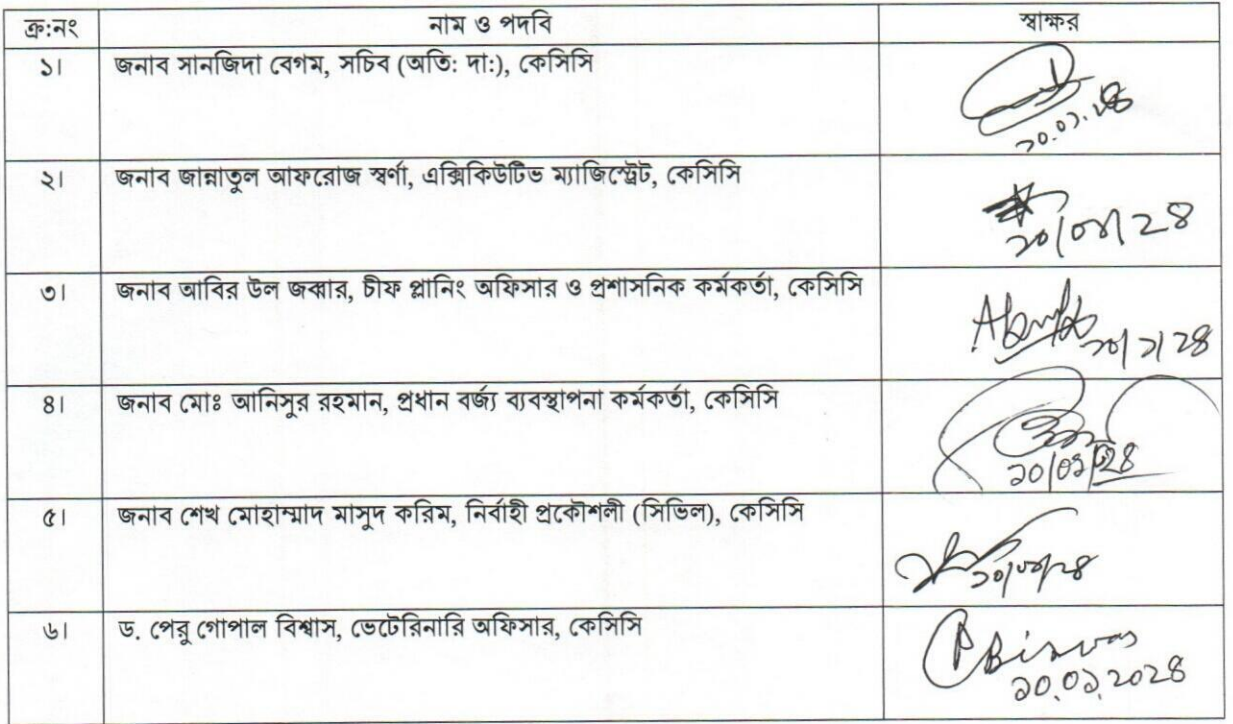 ক্র:নং নাম ও পদবি স্বাক্ষর
১। জনাব সানজিদা বেগম, সচিব (অতি: দা:), কেসিসি
২। জনাব জান্নাতুল আফরোজ স্বর্ণা, এক্সিকিউটিভ ম্যাজিস্ট্রেট, কেসিসি
৩। জনাব আবির উল জব্বার, চীফ প্লানিং অফিসার ও প্রশাসনিক কর্মকর্তা, কেসিসি
৪। জনাব মোঃ আনিসুর রহমান, প্রধান বর্জ্য ব্যবস্থাপনা কর্মকর্তা, কেসিসি
৫। জনাব শেখ মোহাম্মাদ মাসুদ করিম, নির্বাহী প্রকৌশলী (সিভিল), কেসিসি
৬। ড. পেরু গোপাল বিশ্বাস, ভেটেরিনারি অফিসার, কেসিসি PBiswas
২০.০১.২০২৪